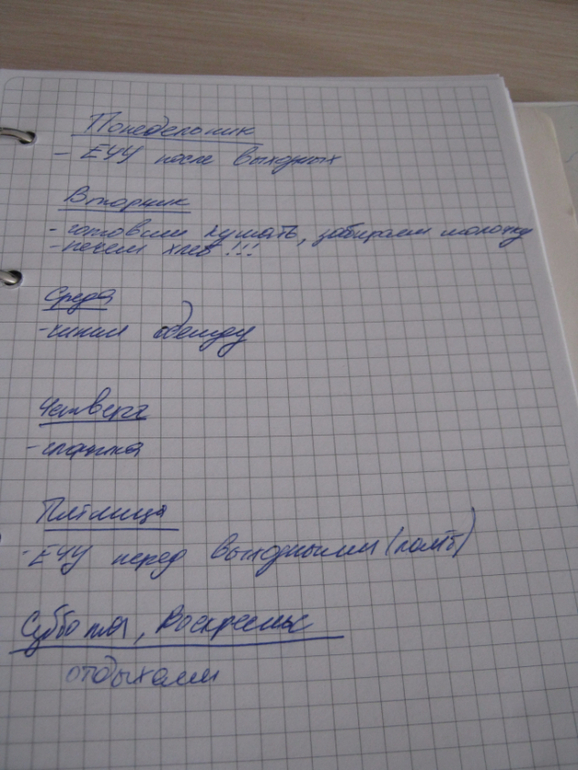 Понедельник
- ЕЧУ после выходных
Вторник
- готовим кушать, забираем молочку
- печем хлеб!!!
Среда
- чиним одежду
Четверг
- стирка
Пятница
- ЕЧУ перед выходными
Суббота, Воскресенье
отдыхаем